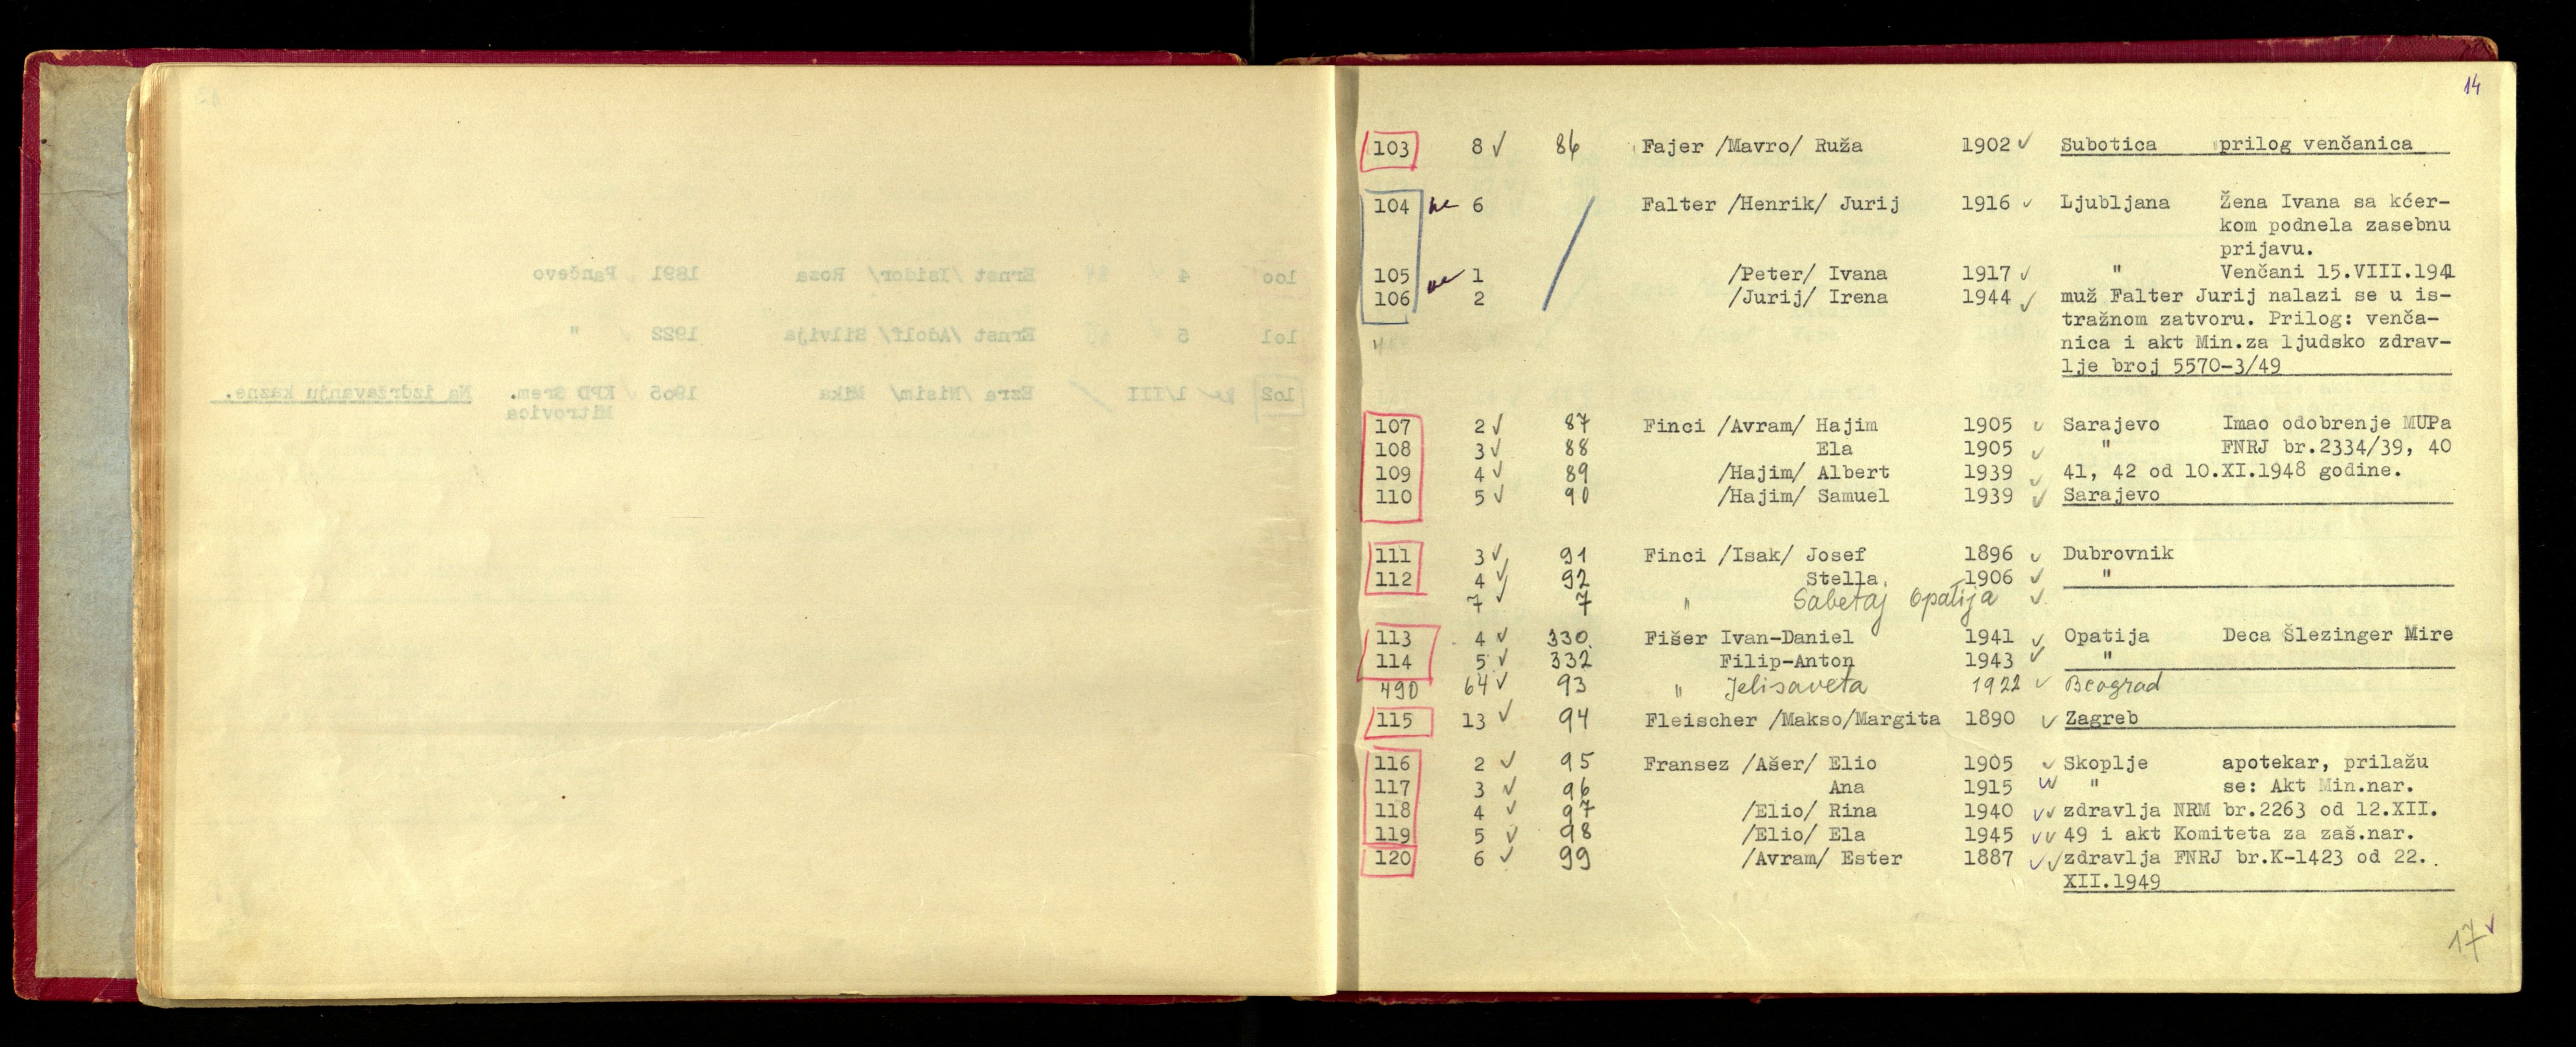 14
103 8 ✓ 86 Fajer /Mavro/ Ruža 1902 ✓ Subotica prilog venčanica
104 ne 6 Falter /Henrik/ Jurij 1916 ✓ Ljubljana Žena Ivana sa kćer-
kom podnela zasebnu
prijavu.
105 ne 1 /Peter/ Ivana 1917 ✓ " Venčani 15.VIII.1941
106 2 /Jurij/ Irena 1944 ✓ muž Falter Jurij nalazi se u is-
tražnom zatvoru. Prilog: venča-
nica i akt Min.za ljudsko zdrav-
lje broj 5570-3/49
107 2 ✓ 87 Finci /Avram/ Hajim 1905 ✓ Sarajevo Imao odobrenje MUPa
108 3 ✓ 88 Ela 1905 ✓ " FNRJ br.2334/39, 40
109 4 ✓ 89 /Hajim/ Albert 1939 ✓ 41, 42 od 10.XI.1948 godine.
110 5 ✓ 90 /Hajim/ Samuel 1939 ✓ Sarajevo
111 3 ✓ 91 Finci /Isak/ Josef 1896 ✓ Dubrovnik
112 4 ✓ 92 Stella 1906 ✓ "
7 ✓ 7 " Sabetaj Opatija ✓
113 4 ✓ 330 Fišer Ivan-Daniel 1941 ✓ Opatija Deca Šlezinger Mire
114 5 ✓ 332 Filip-Anton 1943 ✓ "
490 64 ✓ 93 " Jelisaveta 1922 ✓ Beograd
115 13 ✓ 94 Fleischer /Makso/Margita 1890 ✓ Zagreb
116 2 ✓ 95 Fransez /Ašer/ Elio 1905 ✓ Skoplje apotekar, prilažu
117 3 ✓ 96 Ana 1915 ✓✓ " se: Akt Min.nar.
118 4 ✓ 97 /Elio/ Rina 1940 ✓✓ zdravlja NRM br.2263 od 12.XII.
119 5 ✓ 98 /Elio/ Ela 1945 ✓✓ 49 i akt Komiteta za zaš.nar.
120 6 ✓ 99 /Avram/ Ester 1887 ✓✓ zdravlja FNRJ br.K-1423 od 22.
XII.1949
17 ✓